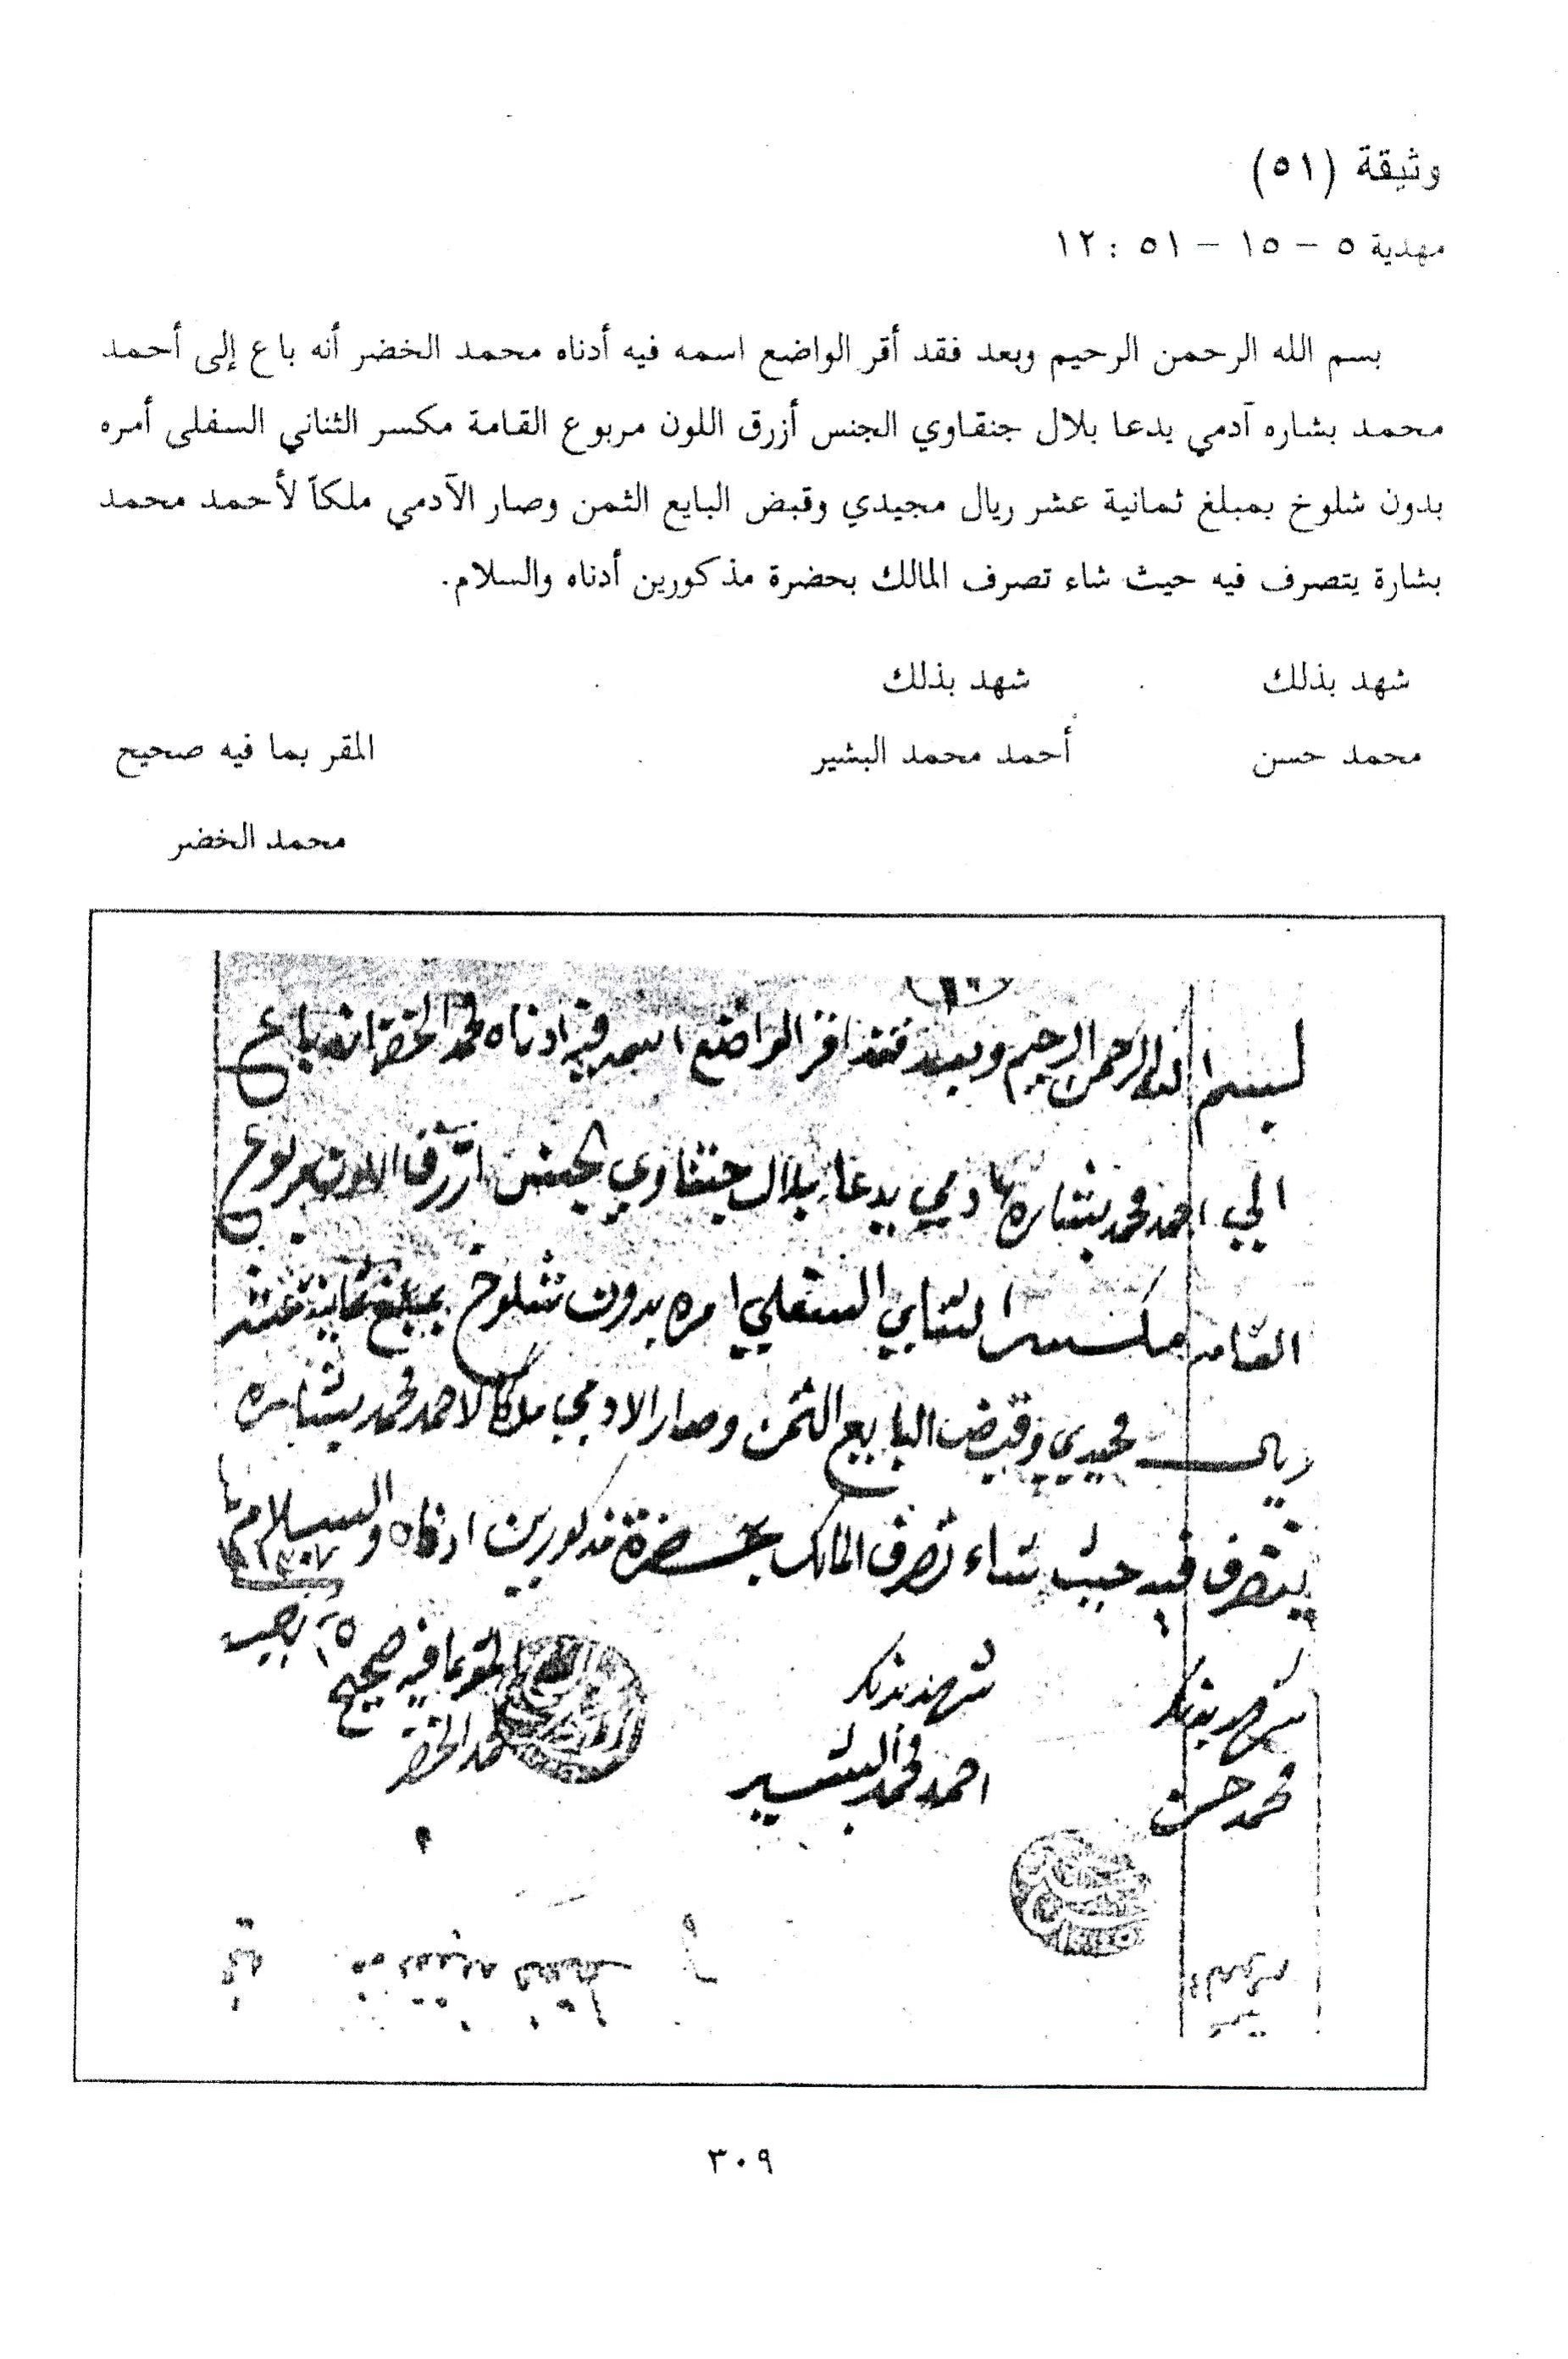 وثيقة (٥١)
مهدية ٥ - ١٥ - ٥١ : ١٢
بسم الله الرحمن الرحيم وبعد فقد أقر الواضع اسمه فيه أدناه محمد الخضر أنه باع إلى أحمد
محمد بشاره آدمي يدعا بلال جنقاوي الجنس أزرق اللون مربوع القامة مكسر الثناني السفلى أمره
بدون شلوخ بمبلغ ثمانية عشر ريال مجيدي وقبض البايع الثمن وصار الآدمي ملكاً لأحمد محمد
بشارة يتصرف فيه حيث شاء تصرف المالك بحضرة مذكورين أدناه والسلام.
شهد بذلك شهد بذلك
محمد حسن أحمد محمد البشير المقر بما فيه صحيح
محمد الخضر
بسم الله الرحمن الرحيم وبعد فقد اقر الواضع اسمه فيه ادناه محمد الخضر انه باع
الي احمد محمد بشاره ادمي يدعا بلال جنقاوي الجنس ازرق اللون مربوع
القامه مكسر الثنايي السفلي امره بدون شلوخ بمبلغ ثمانية عشر
ريال مجيدي وقبض البايع الثمن وصار الادمي ملكا لاحمد محمد بشاره
يتصرف فيه حيث شاء تصرف المالك بحضرة مذكورين ادناه والسلام
١٣٠٧
شهد بذلك شهد بذلك المقر بما فيه صحيح
محمد حسن احمد محمد البشير محمد الخضر
٣٠٩